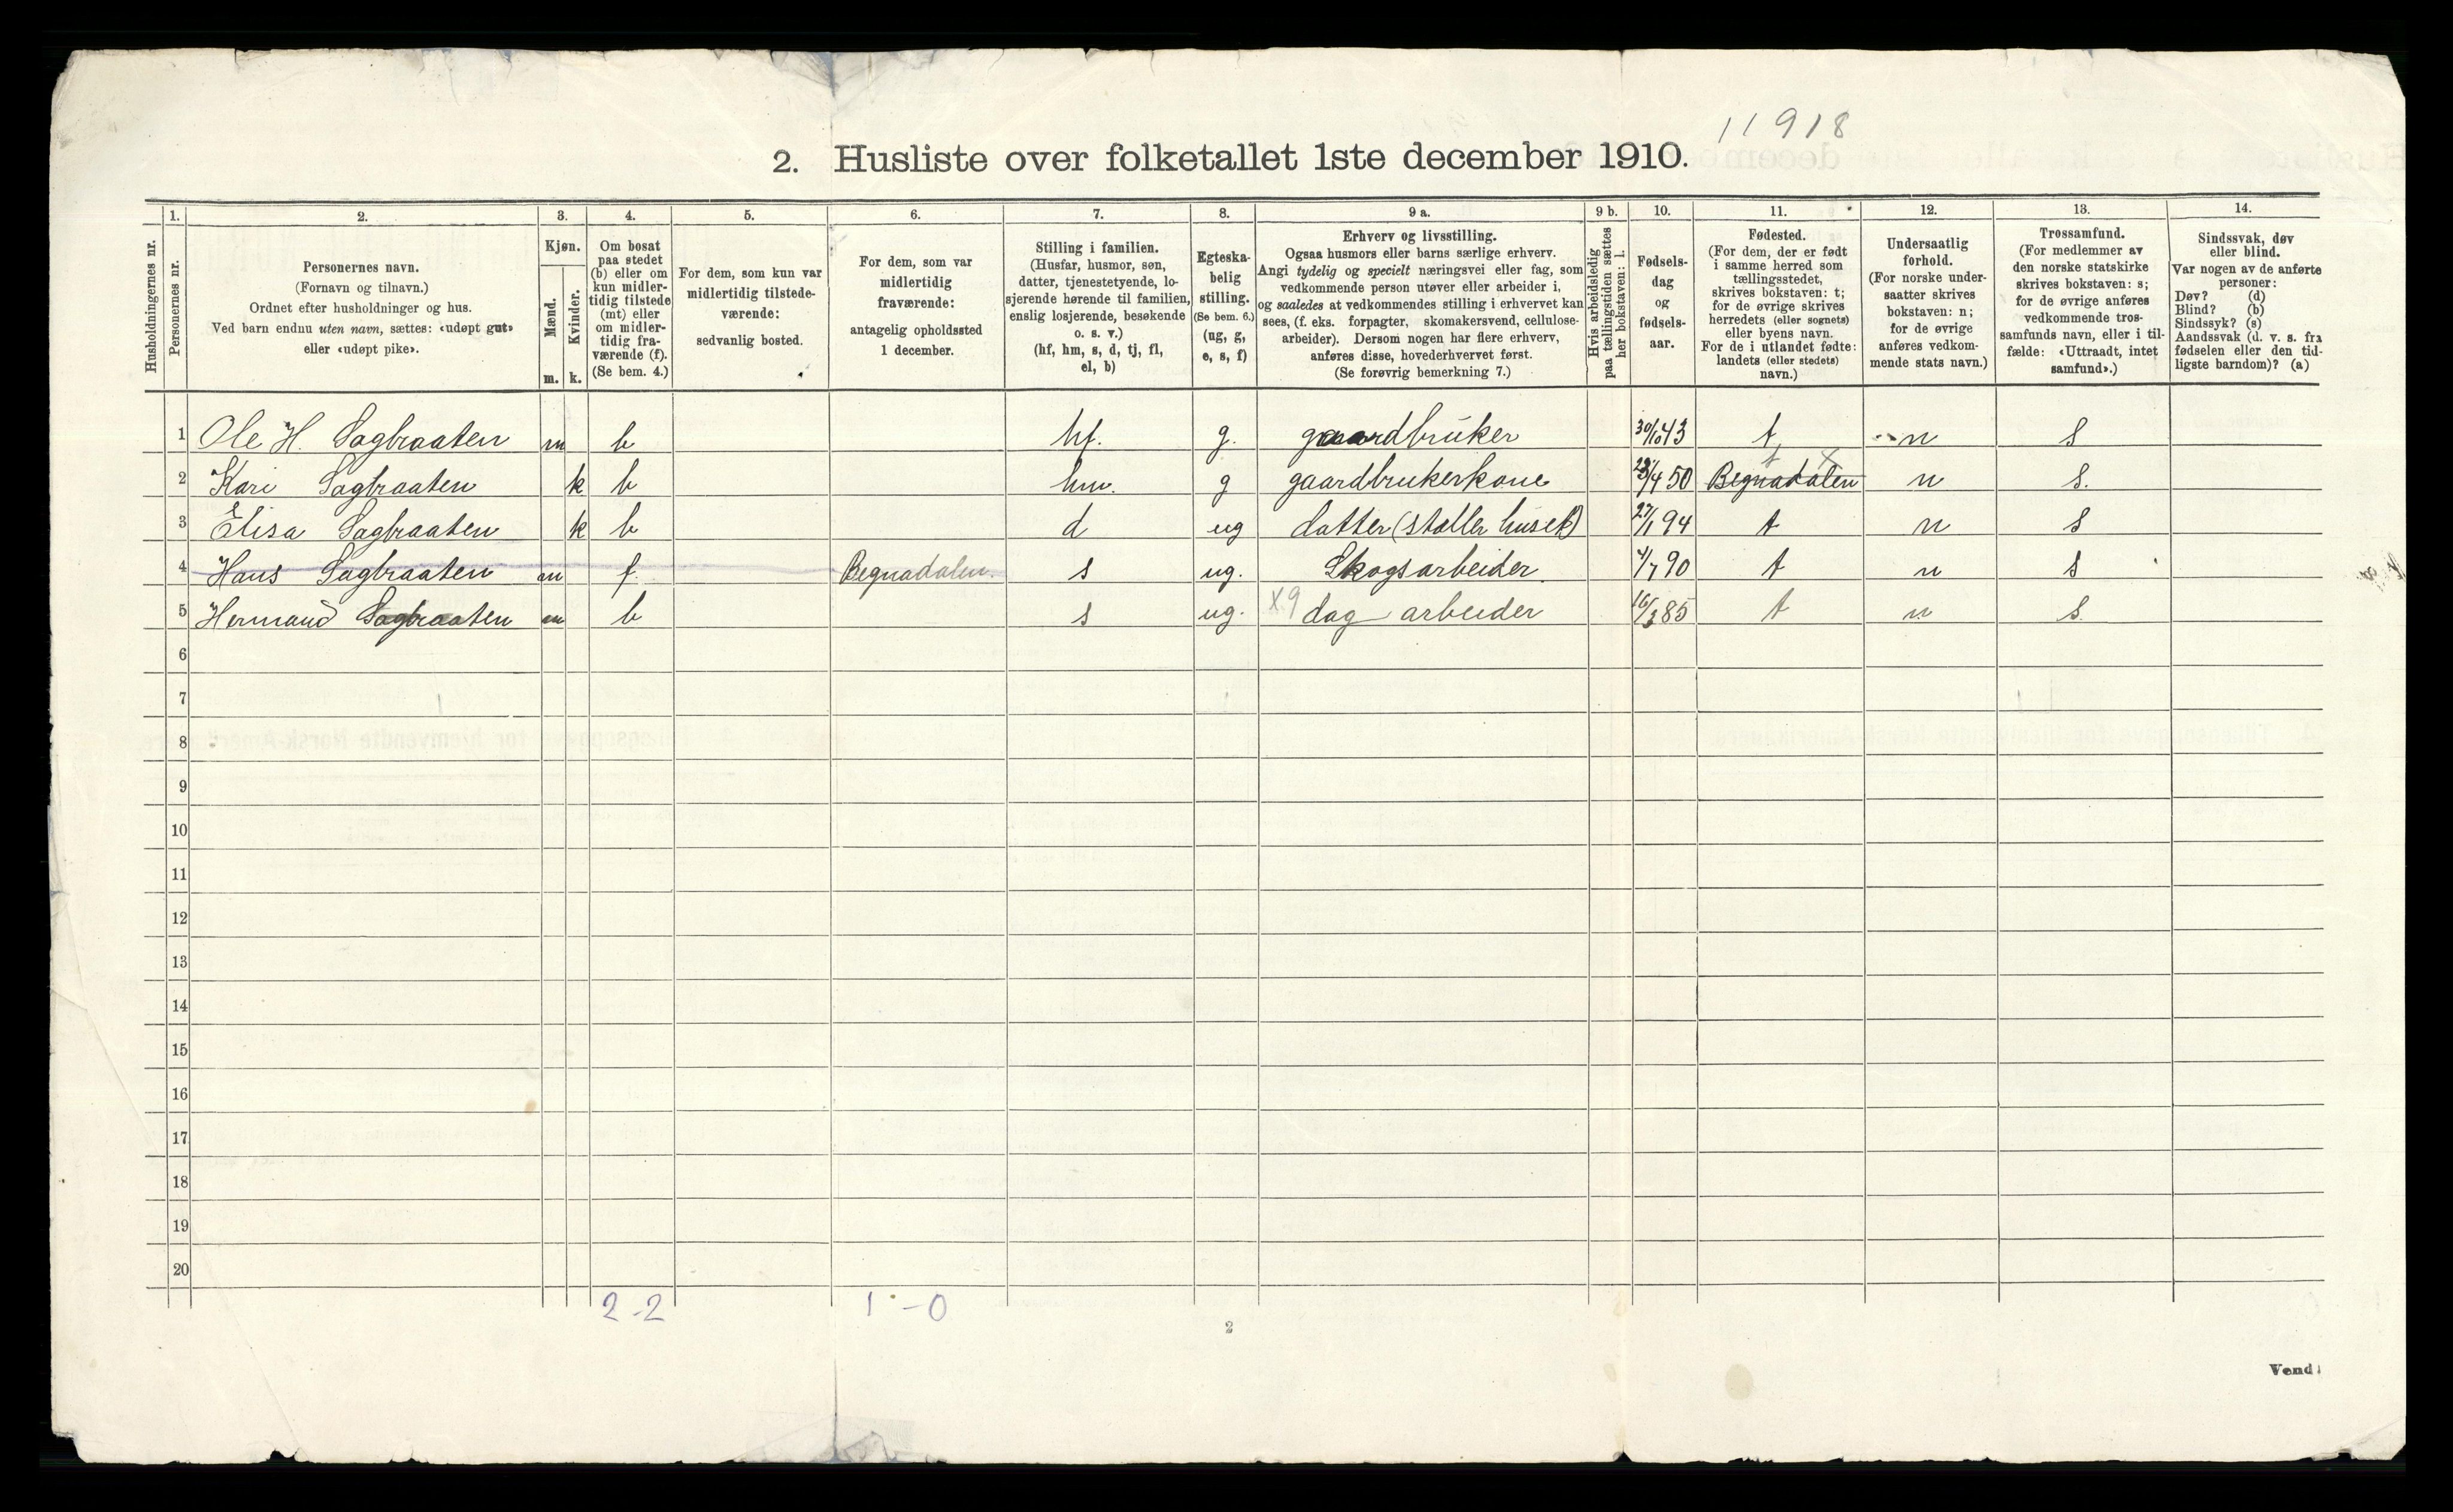 11918
2. Husliste over folketallet 1ste december 1910.
Husholdningernes nr.
1.
Personernes nr.
2.
Personernes navn.
(Fornavn og tilnavn.)
Ordnet efter husholdninger og hus.
Ved barn endnu uten navn, sættes: «udøpt gut»
eller «udøpt pike».
3.
Kjøn.
Mænd.
m.
Kvinder.
k.
4.
Om bosat
paa stedet
(b) eller om
kun midler-
tidig tilstede
(mt) eller
om midler-
tidig fra-
værende (f).
(Se bem. 4.)
5.
For dem, som kun var
midlertidig tilstede-
værende:
sedvanlig bosted.
6.
For dem, som var
midlertidig
fraværende:
antagelig opholdssted
1 december.
7.
Stilling i familien.
(Husfar, husmor, søn,
datter, tjenestetyende, lo-
sjerende hørende til familien,
enslig losjerende, besøkende
o. s. v.)
(hf, hm, s, d, tj, fl,
el, b)
8.
Egteska-
belig
stilling.
(Se bem. 6.)
(ug, g,
e, s, f)
9 a.
Erhverv og livsstilling.
Ogsaa husmors eller barns særlige erhverv.
Angi tydelig og specielt næringsvei eller fag, som
vedkommende person utøver eller arbeider i,
og saaledes at vedkommendes stilling i erhvervet kan
sees, (f. eks. forpagter, skomakersvend, cellulose-
arbeider). Dersom nogen har flere erhverv,
anføres disse, hovederhvervet først.
(Se forøvrig bemerkning 7.)
9 b.
Hvis arbeidsledig
paa tællingstiden sættes
her bokstaven: l.
10.
Fødsels-
dag
og
fødsels-
aar.
11.
Fødested.
(For dem, der er født
i samme herred som
tællingsstedet,
skrives bokstaven: t;
for de øvrige skrives
herredets (eller sognets)
eller byens navn.
For de i utlandet fødte:
landets (eller stedets)
navn.)
12.
Undersaatlig
forhold.
(For norske under-
saatter skrives
bokstaven: n;
for de øvrige
anføres vedkom-
mende stats navn.)
13.
Trossamfund.
(For medlemmer av
den norske statskirke
skrives bokstaven: s;
for de øvrige anføres
vedkommende tros-
samfunds navn, eller i til-
fælde: «Uttraadt, intet
samfund».)
14.
Sindssvak, døv
eller blind.
Var nogen av de anførte
personer:
Døv? (d)
Blind? (b)
Sindssyk? (s)
Aandssvak (d. v. s. fra
fødselen eller den tid-
ligste barndom)? (a)
1 Ole H. Sagbraaten m b hf. g. gaardbruker 30/10 43 t n s
2 Kari Sagbraaten k b hm. g gaardbrukerkone 23/4 50 Begnadalen t x n s.
3 Elisa Sagbraaten k b d ug datter (stæller huset) 27/1 94 t n s
4 Hans Sagbraaten m f. Begnadalen. s ug. Skogsarbeider. 4/7 90 t n s
5 Hermand Sagbraaten m b s ug. x9 dagarbeider 16/3 85 t n s
6
7
8
9
10
11
12
13
14
15
16
17
18
19
20
2-2 1-0
2
Vend!